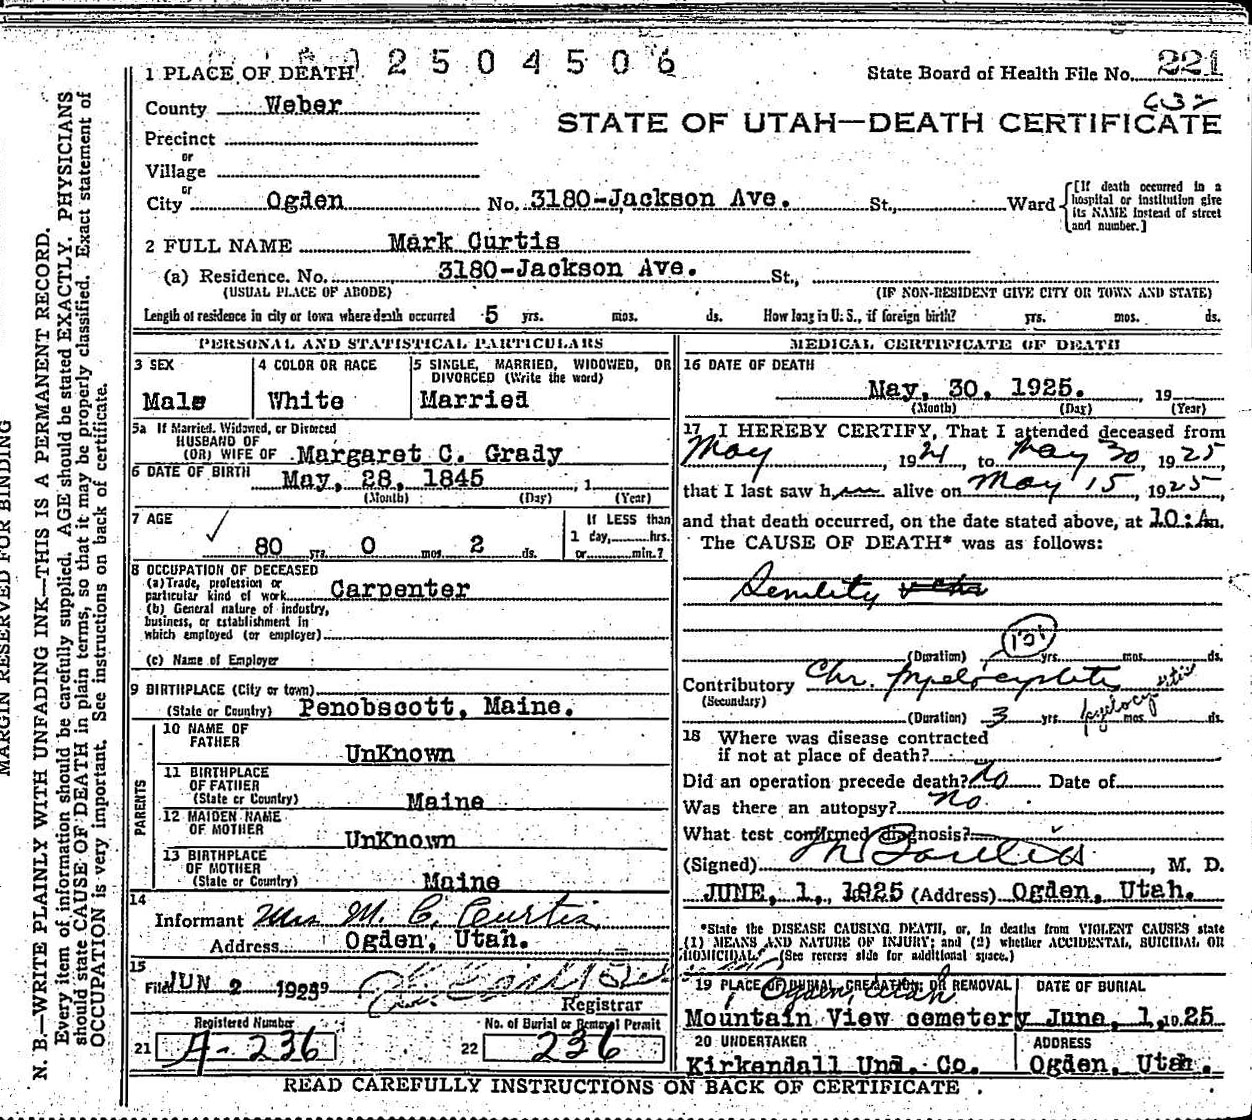 2504506
1 PLACE OF DEATH State Board of Health File No. 221
County Weber
632
STATE OF UTAH—DEATH CERTIFICATE
Precinct
or
Village
or
City Ogden No. 3180-Jackson Ave. St., Ward [If death occurred in a hospital or institution give its NAME instead of street and number.]
2 FULL NAME Mark Curtis
(a) Residence. No. 3180-Jackson Ave. St.,
(USUAL PLACE OF ABODE) (IF NON-RESIDENT GIVE CITY OR TOWN AND STATE)
Length of residence in city or town where death occurred 5 yrs. mos. ds. How long in U. S., if foreign birth? yrs. mos. ds.
PERSONAL AND STATISTICAL PARTICULARS
3 SEX 4 COLOR OR RACE 5 SINGLE, MARRIED, WIDOWED, OR
DIVORCED (Write the word)
Male White Married
5a If Married, Widowed, or Divorced
HUSBAND OF
(OR) WIFE OF Margaret C. Grady
6 DATE OF BIRTH May, 28, 1845 , 1
(Month) (Day) (Year)
7 AGE If LESS than
1 day, hrs.
80 yrs. 0 mos. 2 ds. or min.?
8 OCCUPATION OF DECEASED
(a) Trade, profession or
particular kind of work Carpenter
(b) General nature of industry,
business, or establishment in
which employed (or employer)
(c) Name of Employer
9 BIRTHPLACE (City or town)
(State or Country) Penobscott, Maine.
PARENTS
10 NAME OF
FATHER UnKnown
11 BIRTHPLACE
OF FATHER
(State or Country) Maine
12 MAIDEN NAME
OF MOTHER UnKnown
13 BIRTHPLACE
OF MOTHER
(State or Country) Maine
14
Informant Mrs M. C. Curtis,
Address Ogden, Utah.
15
Filed JUN 2 1925
Registrar
Registered Number No. of Burial or Removal Permit
21 A-236 22 236
MEDICAL CERTIFICATE OF DEATH
16 DATE OF DEATH
May, 30, 1925. 19
(Month) (Day) (Year)
17 I HEREBY CERTIFY, That I attended deceased from
May , 1921, to May 30, 1925
that I last saw him alive on May 15, 1925,
and that death occurred, on the date stated above, at 10:A.m.
The CAUSE OF DEATH* was as follows:
Senility
131
(Duration) yrs. mos. ds.
Contributory Chr. Myelocystitis
(Secondary)
pyelocystitis
(Duration) 3 yrs. mos. ds.
18 Where was disease contracted
if not at place of death?
Did an operation precede death? No Date of
Was there an autopsy? no.
What test confirmed diagnosis?
(Signed) , M. D.
JUNE, 1, 1925 (Address) Ogden, Utah.
*State the DISEASE CAUSING DEATH, or, in deaths from VIOLENT CAUSES state
(1) MEANS AND NATURE OF INJURY; and (2) whether ACCIDENTAL, SUICIDAL OR
HOMICIDAL. (See reverse side for additional space.)
19 PLACE OF BURIAL, CREMATION, OR REMOVAL DATE OF BURIAL
Ogden, Utah
Mountain View cemetery June, 1, 1925
20 UNDERTAKER ADDRESS
Kirkendall Und. Co. Ogden, Utah.
READ CAREFULLY INSTRUCTIONS ON BACK OF CERTIFICATE.
MARGIN RESERVED FOR BINDING
N. B.—WRITE PLAINLY WITH UNFADING INK—THIS IS A PERMANENT RECORD.
Every item of information should be carefully supplied. AGE should be stated EXACTLY. PHYSICIANS
should state CAUSE OF DEATH in plain terms, so that it may be properly classified. Exact statement of
OCCUPATION is very important. See instructions on back of certificate.